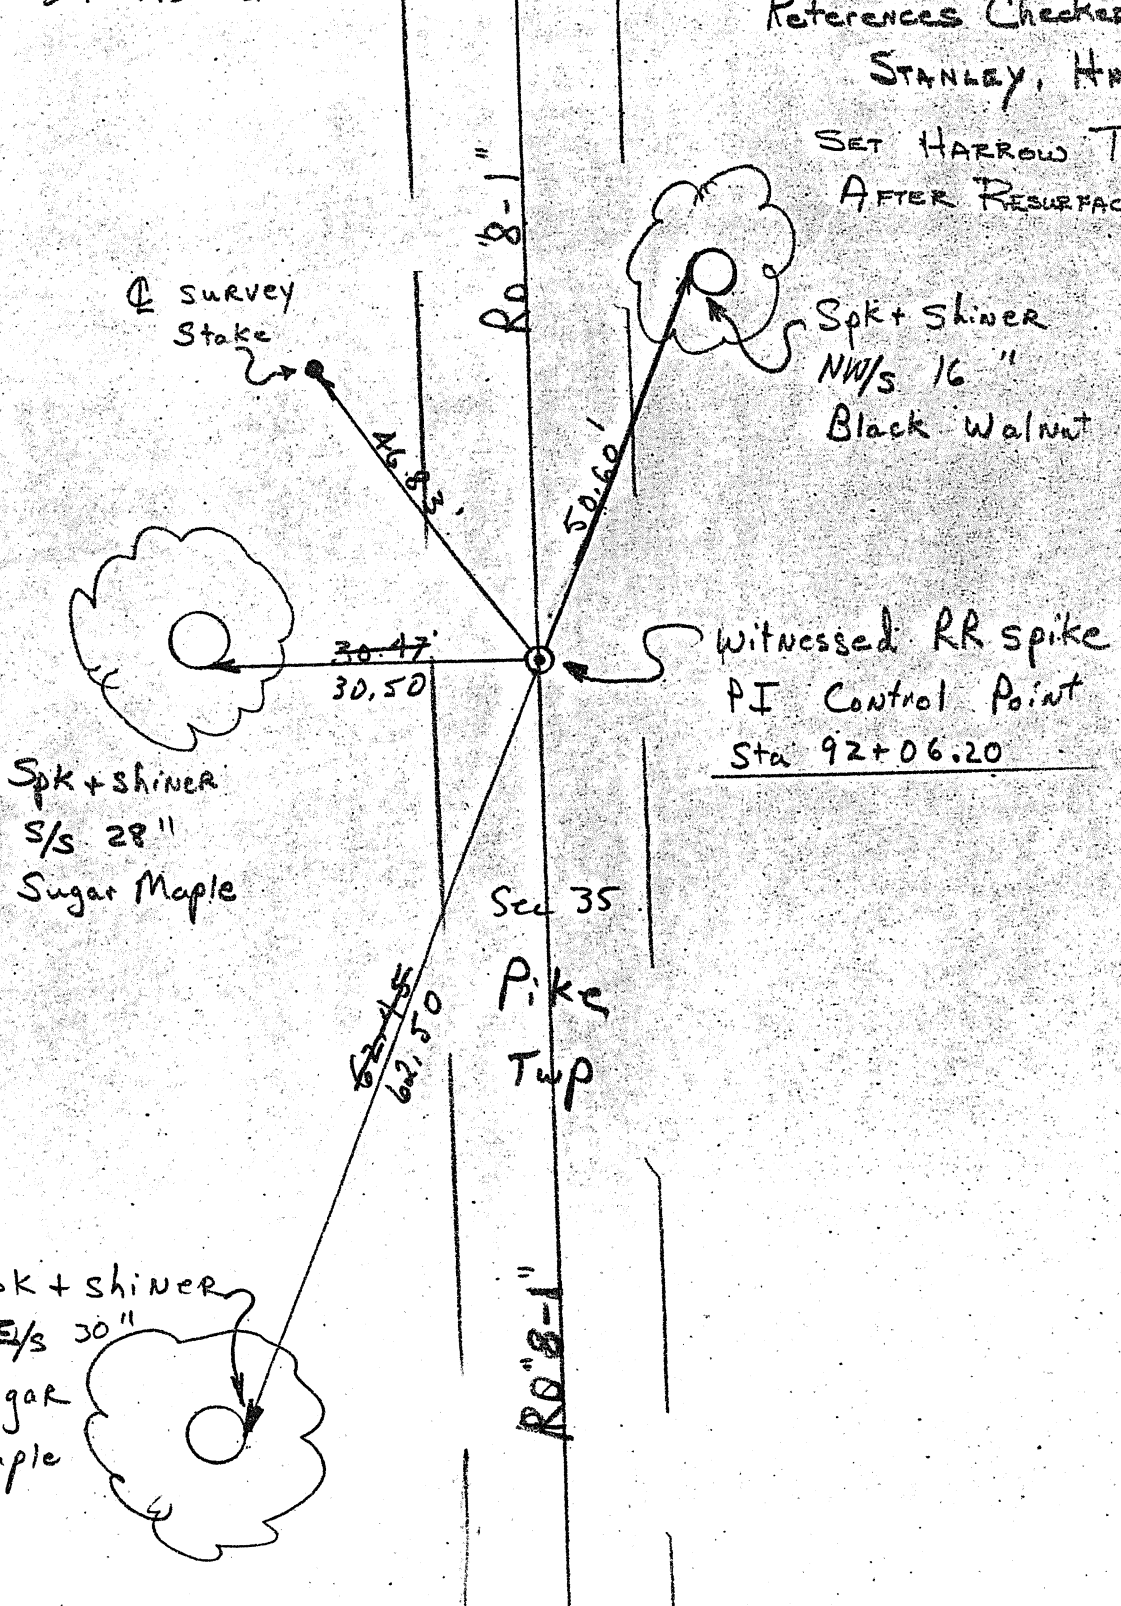 References Checked
STANLEY, H
SET HARROW T
AFTER RESURFAC
RD "8-1"
℄ survey
Stake
46.83'
50.60'
Spk + shiner
NW/s 16"
Black Walnut
30.47'
30.50
Witnessed RR spike
PI Control Point
Sta 92+06.20
Spk + shiner
S/s 28"
Sugar Maple
Sec 35
Pike
Twp
62.45
62.50
pk + shiner
E/s 30"
gar
ple
RD "8-1"